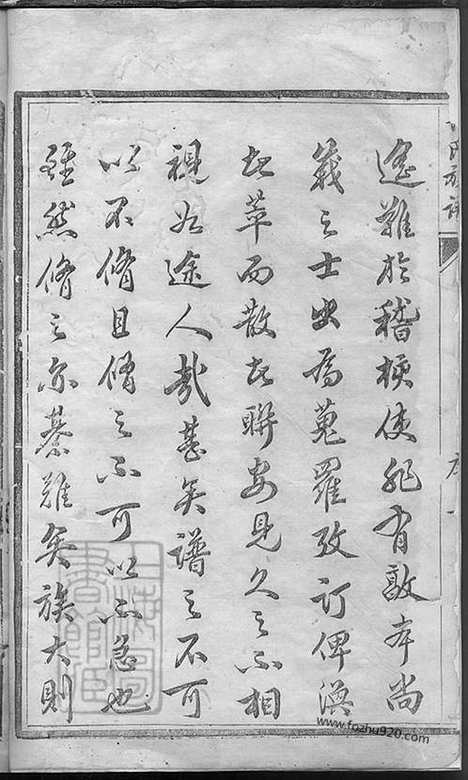 遙難於稽核使非有敦本尚
義之士出爲蒐羅攷訂俾渙
者萃而散者聯安見久之不相
視如途人哉甚矣譜之不可
以不脩且脩之不可以不急也
雖然脩之亦綦難矣族大則
上海圖書館藏
www.fozhu920.com